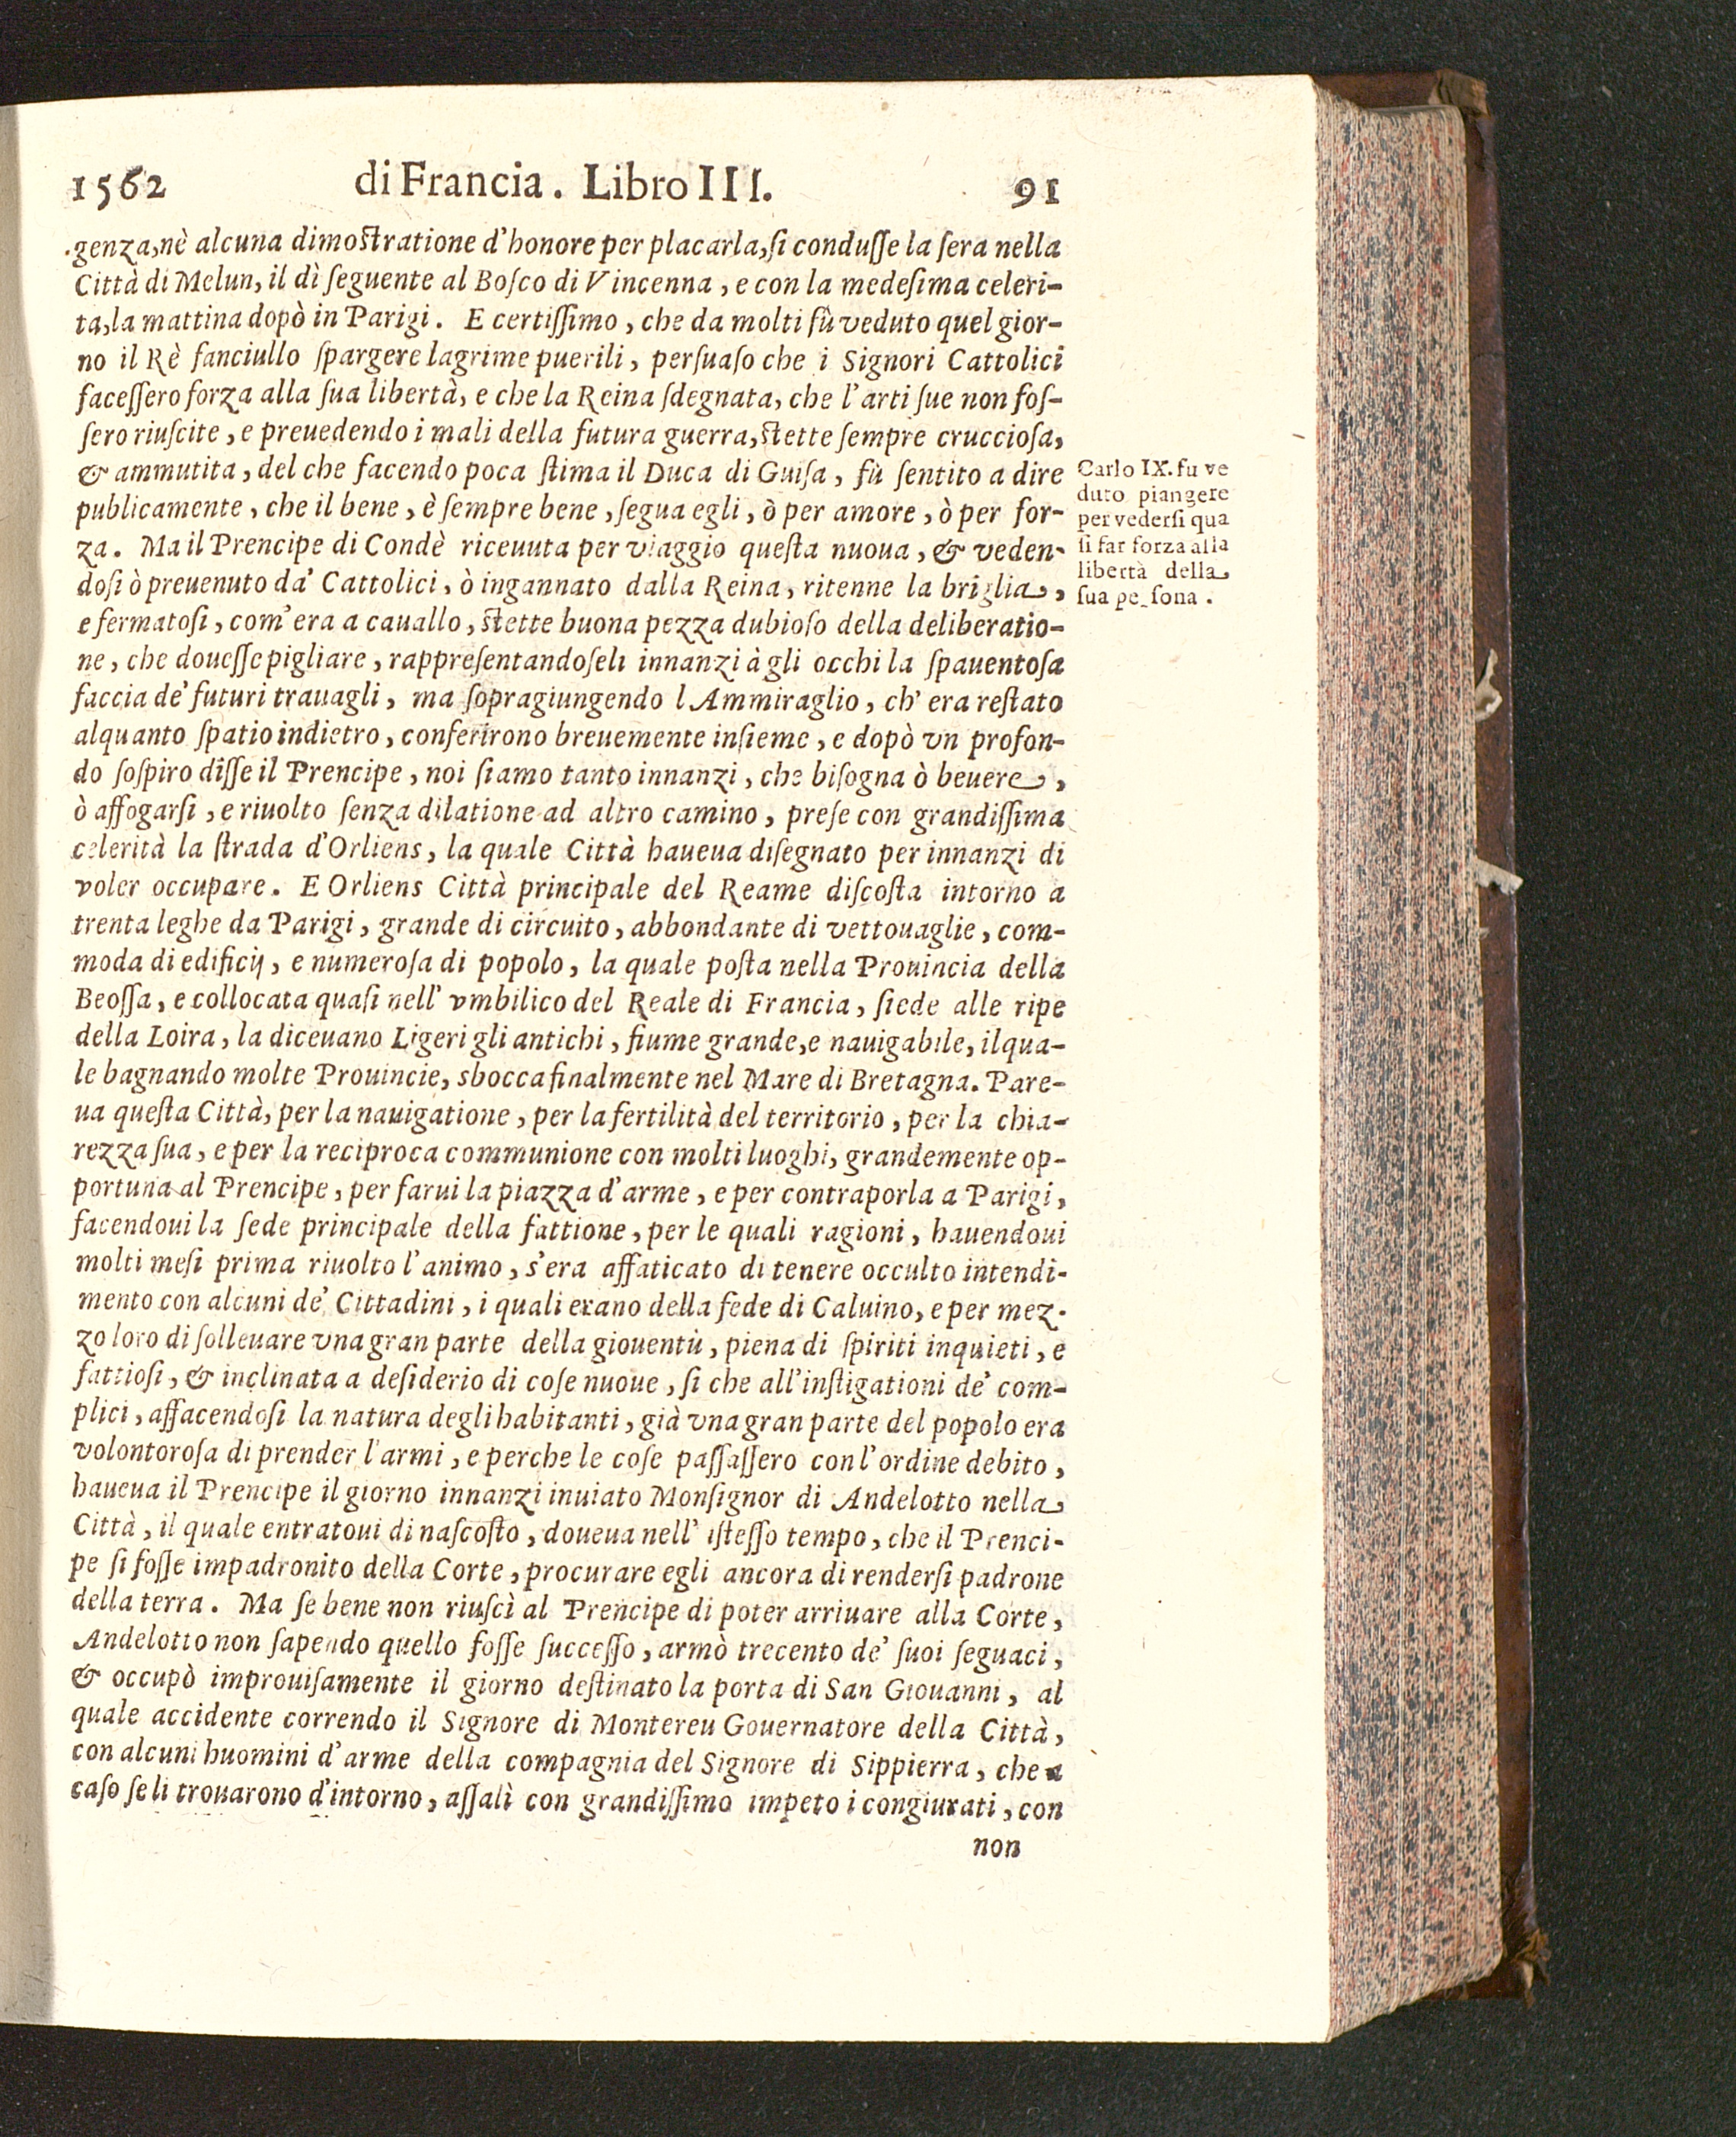 1562 di Francia. Libro III. 91
genza, nè alcuna dimoſtratione d'honore per placarla, ſi conduſſe la ſera nella
Città di Melun, il dì ſeguente al Boſco di Vincenna, e con la medeſima celeri-
ta, la mattina dopò in Parigi. E certiſſimo, che da molti fù veduto quel gior-
no il Rè fanciullo ſpargere lagrime puerili, perſuaſo che i Signori Cattolici
faceſſero forza alla ſua libertà, e che la Reina ſdegnata, che l'arti ſue non foſ-
ſero riuſcite, e preuedendo i mali della futura guerra, ſtette ſempre cruccioſa,
& ammutita, del che facendo poca ſtima il Duca di Guiſa, fù ſentito a dire
publicamente, che il bene, è ſempre bene, ſegua egli, ò per amore, ò per for-
za. Ma il Prencipe di Condè riceuuta per viaggio queſta nuoua, & veden-
doſi ò preuenuto da' Cattolici, ò ingannato dalla Reina, ritenne la briglia,
e fermatoſi, com'era a cauallo, ſtette buona pezza dubioſo della deliberatio-
ne, che doueſſe pigliare, rappreſentandoſeli innanzi à gli occhi la ſpauentoſa
faccia de' futuri trauagli, ma ſopragiungendo l Ammiraglio, ch' era reſtato
alquanto ſpatio indietro, conferirono breuemente inſieme, e dopò vn profon-
do ſoſpiro diſſe il Prencipe, noi ſiamo tanto innanzi, che biſogna ò beuere,
ò affogarſi, e riuolto ſenza dilatione ad altro camino, preſe con grandiſſima
celerità la ſtrada d'Orliens, la quale Città haueua diſegnato per innanzi di
voler occupare. E Orliens Città principale del Reame diſcoſta intorno a
trenta leghe da Parigi, grande di circuito, abbondante di vettouaglie, com-
moda di edificij, e numeroſa di popolo, la quale poſta nella Prouincia della
Beoſſa, e collocata quaſi nell' vmbilico del Reale di Francia, ſiede alle ripe
della Loira, la diceuano Ligeri gli antichi, fiume grande, e nauigabile, il qua-
le bagnando molte Prouincie, sbocca finalmente nel Mare di Bretagna. Pare-
ua queſta Città, per la nauigatione, per la fertilità del territorio, per la chia-
rezza ſua, e per la reciproca communione con molti luoghi, grandemente op-
portuna al Prencipe, per farui la piazza d'arme, e per contraporla a Parigi,
facendoui la ſede principale della fattione, per le quali ragioni, hauendoui
molti meſi prima riuolto l'animo, s'era affaticato di tenere occulto intendi-
mento con alcuni de' Cittadini, i quali erano della fede di Caluino, e per mez-
zo loro di ſolleuare vna gran parte della giouentù, piena di ſpiriti inquieti, e
fattioſi, & inclinata a deſiderio di coſe nuoue, ſi che all'inſtigationi de' com-
plici, affacendoſi la natura degli habitanti, già vna gran parte del popolo era
volontoroſa di prender l'armi, e perche le coſe paſſaſſero con l'ordine debito,
haueua il Prencipe il giorno innanzi inuiato Monſignor di Andelotto nella
Città, il quale entratoui di naſcoſto, doueua nell' iſteſſo tempo, che il Prenci-
pe ſi foſſe impadronito della Corte, procurare egli ancora di renderſi padrone
della terra. Ma ſe bene non riuſcì al Prencipe di poter arriuare alla Corte,
Andelotto non ſapendo quello foſſe ſucceſſo, armò trecento de' ſuoi ſeguaci,
& occupò improuiſamente il giorno deſtinato la porta di San Giouanni, al
quale accidente correndo il Signore di Montereu Gouernatore della Città,
con alcuni huomini d'arme della compagnia del Signore di Sippierra, che a
caſo ſe li trouarono d'intorno, aſſalì con grandiſſimo impeto i congiurati, con
non
Carlo IX. fu ve
duto piangere
per vederſi qua
ſi far forza alla
libertà della
ſua pe ſona.